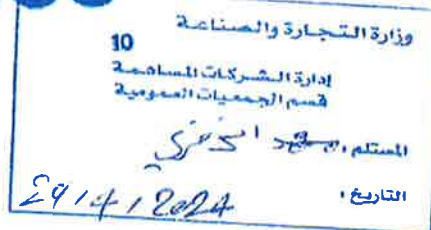 وزارة التجارة والصناعة
10
إدارة الشركات المساهمة
قسم الجمعيات العمومية
المستلم :
التاريخ : 29 / 4 / 2024